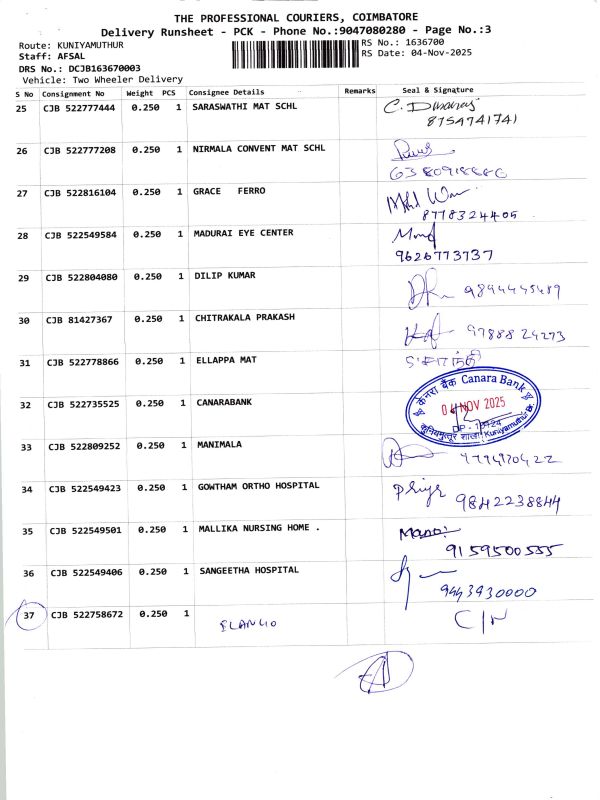 THE PROFESSIONAL COURIERS, COIMBATORE
Delivery Runsheet - PCK - Phone No.:9047080280 - Page No.:3
Route: KUNIYAMUTHUR RS No.: 1636700
Staff: AFSAL RS Date: 04-Nov-2025
DRS No.: DCJB163670003
Vehicle: Two Wheeler Delivery
S No Consignment No Weight PCS Consignee Details Remarks Seal & Signature
25 CJB 522777444 0.250 1 SARASWATHI MAT SCHL
8754741741
26 CJB 522777208 0.250 1 NIRMALA CONVENT MAT SCHL
27 CJB 522816104 0.250 1 GRACE FERRO
8778324405
28 CJB 522549584 0.250 1 MADURAI EYE CENTER
9626773737
29 CJB 522804080 0.250 1 DILIP KUMAR 9894445489
30 CJB 81427367 0.250 1 CHITRAKALA PRAKASH 9788824273
31 CJB 522778866 0.250 1 ELLAPPA MAT
32 CJB 522735525 0.250 1 CANARABANK
केनरा बैंक Canara Bank
04 NOV 2025
Kuniyamuthur Br.
33 CJB 522809252 0.250 1 MANIMALA
34 CJB 522549423 0.250 1 GOWTHAM ORTHO HOSPITAL Priya 9842238844
35 CJB 522549501 0.250 1 MALLIKA NURSING HOME . Manoj
9159500555
36 CJB 522549406 0.250 1 SANGEETHA HOSPITAL
9443930000
37 CJB 522758672 0.250 1 ELANGO C/N